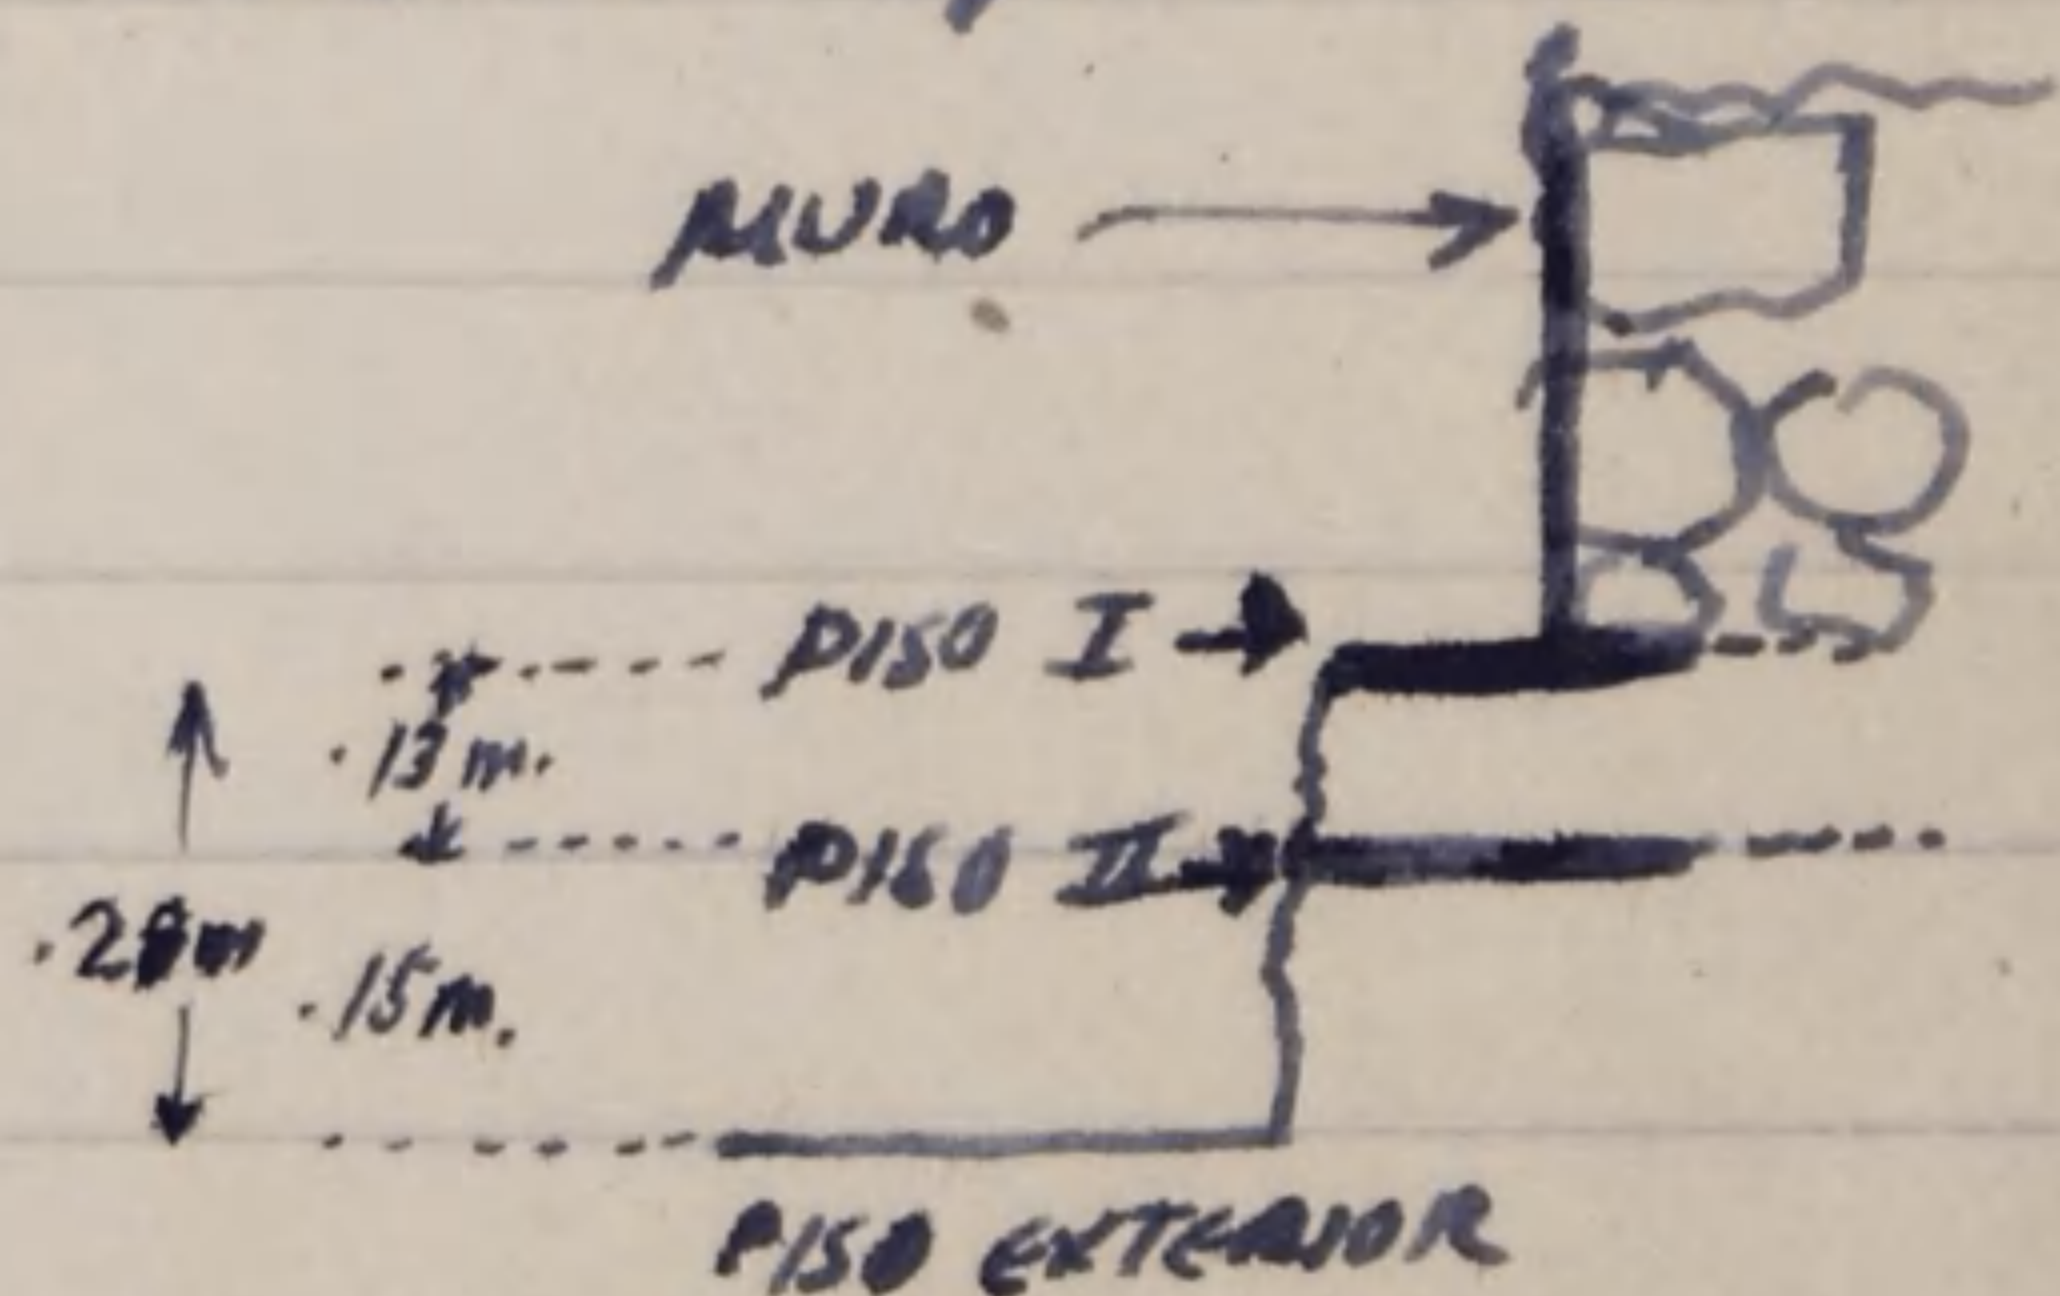 MURO
PISO I
.13 m.
PISO II
.28m
.15m.
PISO EXTERIOR